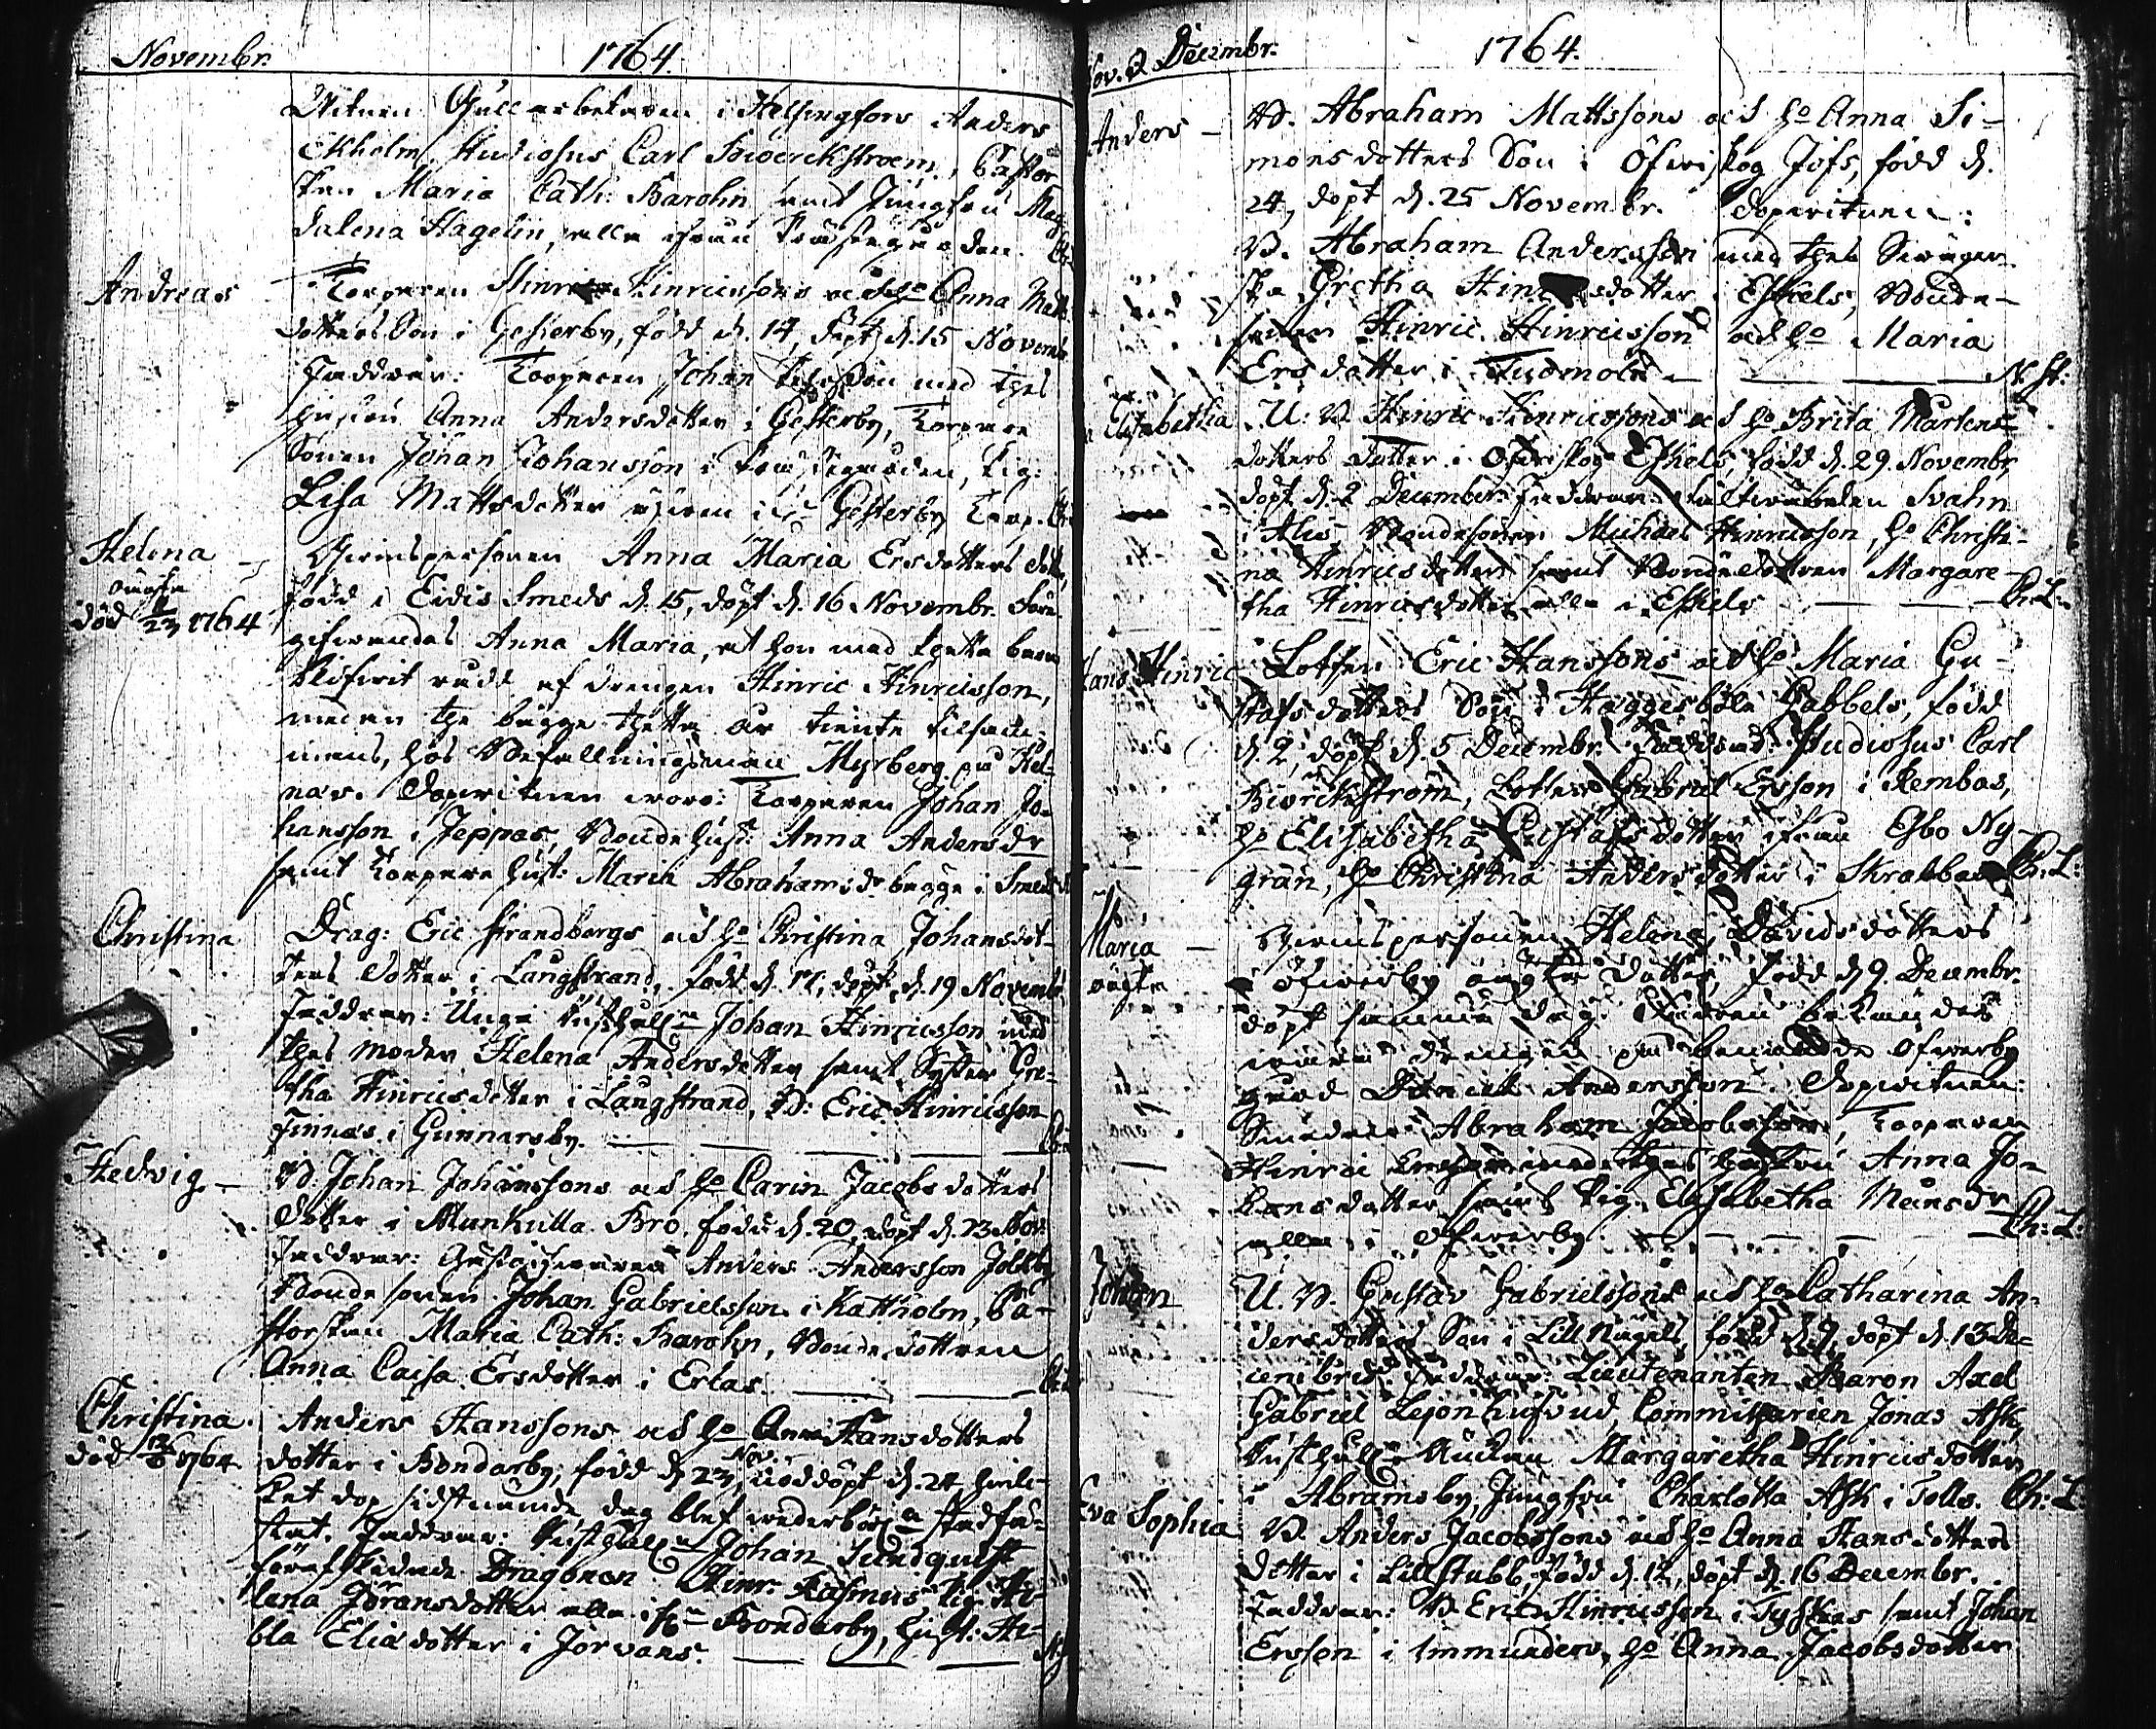 Novembr. 1764.
Witnen Gullarbetaren i Helsingfors Anders
Ekholm, Studiosus Carl Bioerckstroem, Pastor
skan Maria Cath: Barohn samt Jungfru Mag
dalena Hagelin, alla
Andreas
Torparen Hinric Hinricssons och ho Anna Matts
dotters Son i Gesterby, född d. 14, döpt d. 15 Novemb
Faddrar: Torparen Johan med thes
hustru Anna Andersdotter i Gesterby, Torpare
Sonen Johan Johansson i, Pig:
Lisa Mattsdotter i Gesterby Torp.
Helena
oäckta
död 1764
Qwinspersonen Anna Maria Ersdotters dotter,
född i Eidis Smeds d. 15, döpt d. 16 Novembr. Före
gifwandes Anna Maria, at hon med thetta barn
blifwit rådd af drengen Hinric Hinricsson,
medan the bägge thetta år tiente tilsam-
mans, hos Befallningsman Myrberg på Hel-
näs. Dopwitnen woro: Torparen Johan Jo-
hansson i Jeppas, Bonde hust: Anna Andersdr
samt Torpare hust: Maria Abrahamsdr begge i Smeds
Christina
Drag: Eric Strandbergs och ho Christina Johansdot-
ters dotter i Långstrand, född d. 17, döpt d. 19 Novemb.
Faddrar: Unga Johan Hinricsson med
thes moder Helena Andersdotter samt Syster Gre-
tha Hinricsdotter i Långstrand, B: Eric Hinricsson
Finnas i Gunnarsby.
Hedvig
B. Johan Johanssons och ho Carin Jacobsdotters
dotter i Munkulla Bro, född d. 20, döpt d. 23 Nov:
Faddrar: Anders Andersson Jolkby
Bondesonen Johan Gabrielsson i Kattholm, Pa-
storskan Maria Cath: Barohn, Bondedottren
Anna Caisa Ersdotter i Erlas.
Christina.
död 1764.
Anders Hanssons och ho Anna Hansdotters
dotter i Bondarby, född d. 23, Nov. nöddöpt d. 24 hwil-
ket dop sidstnämde dag blef wederbörl: stadfä-
stat. Faddrar: Johan Sundquist
Dragonen Hinr: Rasmus, Pig: He-
lena Jöransdotter alla i Bondarby, hust: He-
bla Eliædotter i Jorvans.
Nov. & Decembr. 1764.
Anders
B. Abraham Mattssons och ho Anna Si-
monsdotters Son i Öfwiskog Jofs, född d.
24, döpt d. 25 Novembr. Dopwitnen:
B. Abraham Andersson med thes Swäger-
ska Gretha Hinricsdotter i Eskels, Bonde-
sonen Hinric Hinricsson och ho Maria
Ersdotter i Sudmola N. St:
Elisabetha
U: B Hinric Hinricssons och ho Brita Mårtens-
dotters dotter i Öfwiskog Eskels, född d. 29. Novembr
döpt d. 2 December. Faddrar: Svahn
i Alis, Bondesonen Michael Hinricsson, ho Christi-
na Hinricsdotter samt Bondedottren Margare-
tha Hinricsdotter alla i Eskels Ch: L:
Hans Hinric
Lotsen Eric Hanssons och ho Maria Gu-
stafsdotters Son i Haggesböle Gabbels, född
d. 2, döpt d. 5 Decembr. Faddrar: Studiosus Carl
Biörckström, Lotsen Gabriel Ersson i Rembas,
ho Elisabetha Gustafsdotter ifrån Esbo Ny-
gran, ho Christina Andersdotter i Skrabba Ch: L:
Maria
oäckta
Qwinspersonen Helena Davidsdotters
i Öfwerby oäckta dotter, född d. 9 Decembr.
döpt samma dag. Fadren bekändes
wara drengen på benämde Öfwerby
gård Daniel Andersson. Dopwitnen:
Smeden Abraham Jacobsson, Torparen
Hinric Ersson med thes hustru Anna Jo-
hansdotter samt Pig. Elisabetha Månsdr
alla i Öfwerby. Ch: L:
Johan
U. B. Gustav Gabrielssons och ho Catharina An-
dersdotters Son i Lill Nägels, född d. 9, döpt d. 13 De-
cembris. Faddrar: Lieutenanten Baron Axel
Gabriel Lejonhufvud, Commissarien Jonas Ask,
Margaretha Hinricsdotter
i Abramsby, Jungfru Charlotta Ask i Tolls. Ch: L
Eva Sophia
B. Anders Jacobssons och ho Anna Hansdotters
dotter i Lillstubb, född d. 12, döpt d. 16 Decembr.
Faddrar: B. Eric Hinricsson i Tyskas samt Johan
Ersson i Immunders, ho Anna Jacobsdotter